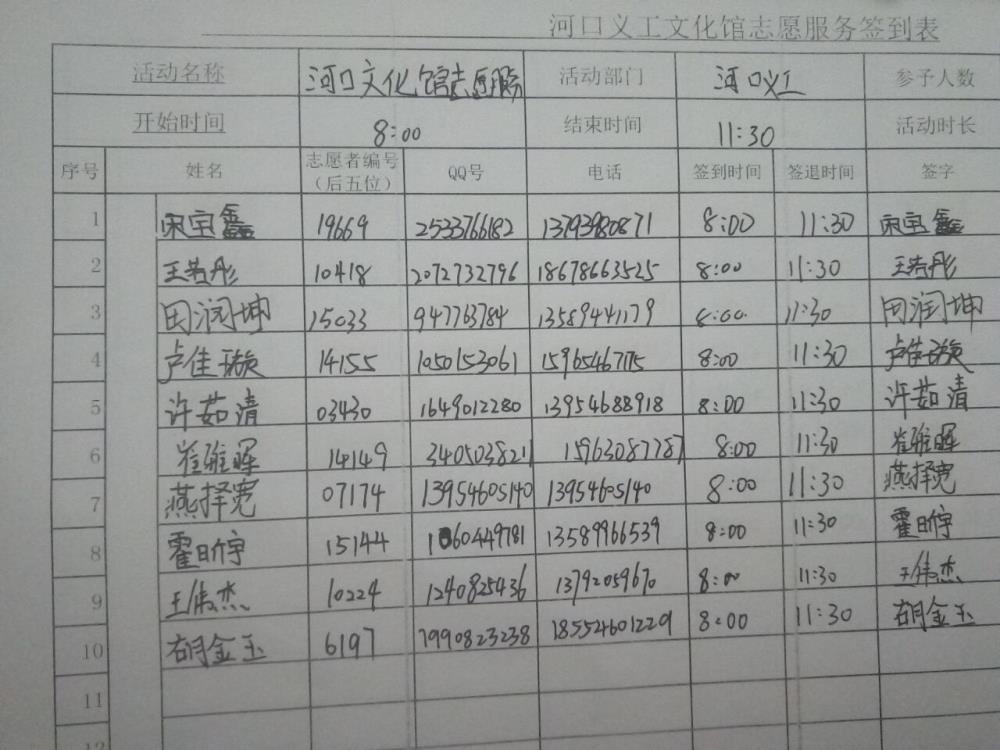 河口义工文化馆志愿服务签到表
活动名称 河口文化馆志愿服务 活动部门 河口义工 参予人数
开始时间 8:00 结束时间 11:30 活动时长
序号 姓名 志愿者编号（后五位） QQ号 电话 签到时间 签退时间 签字
1 宋宝鑫 19669 2533766182 13793980871 8:00 11:30 宋宝鑫
2 王若彤 10418 2072732796 18678663525 8:00 11:30 王若彤
3 田润坤 15033 947763784 13589441179 8:00 11:30 田润坤
4 卢佳璇 14155 1050153061 15965467115 8:00 11:30 卢佳璇
5 许茹清 03430 1649012280 13954688918 8:00 11:30 许茹清
6 崔雅晖 14149 3405038211 15963087787 8:00 11:30 崔雅晖
7 燕择宽 07174 13954605140 13954605140 8:00 11:30 燕择宽
8 霍昕宇 15144 1060449781 13589966539 8:00 11:30 霍昕宇
9 王伟杰 10224 1240825436 13792059670 8:00 11:30 王伟杰
10 胡金玉 6197 7990823238 18554601229 8:00 11:30 胡金玉
11
12